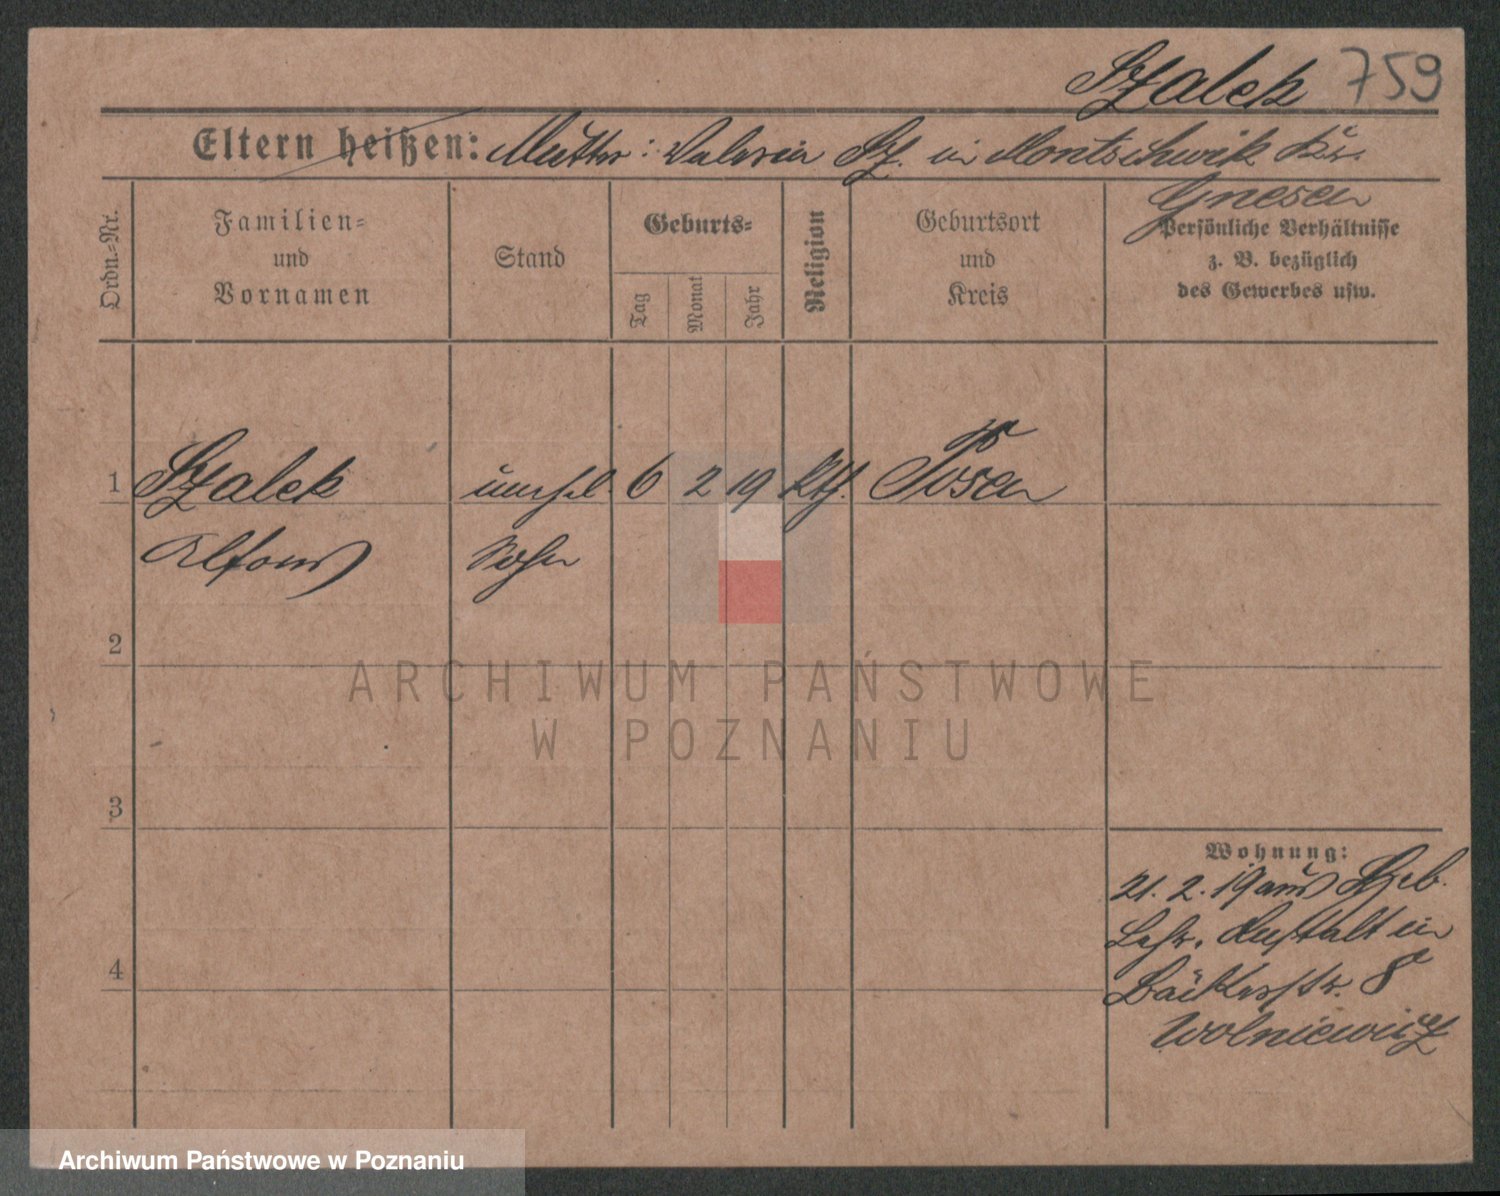 Szalek 759
Eltern heißen: Mutter: Valeria Sz. in Montschnik Kr.
Gnesen
Ordn.-Nr.
Familien-
und
Vornamen
Stand
Geburts-
Tag
Monat
Jahr
Religion
Geburtsort
und
Kreis
Persönliche Verhältnisse
z. B. bezüglich
des Gewerbes usw.
1 Szalek unehel. 6 2 19 Kth. Posen
Alfons Sohn
2
ARCHIWUM PAŃSTWOWE
W POZNANIU
3
Wohnung:
21. 2. 19 aus Geb.
Lehr. Anstalt in
4
Bäckerstr. 8
Wolniewicz
Archiwum Państwowe w Poznaniu